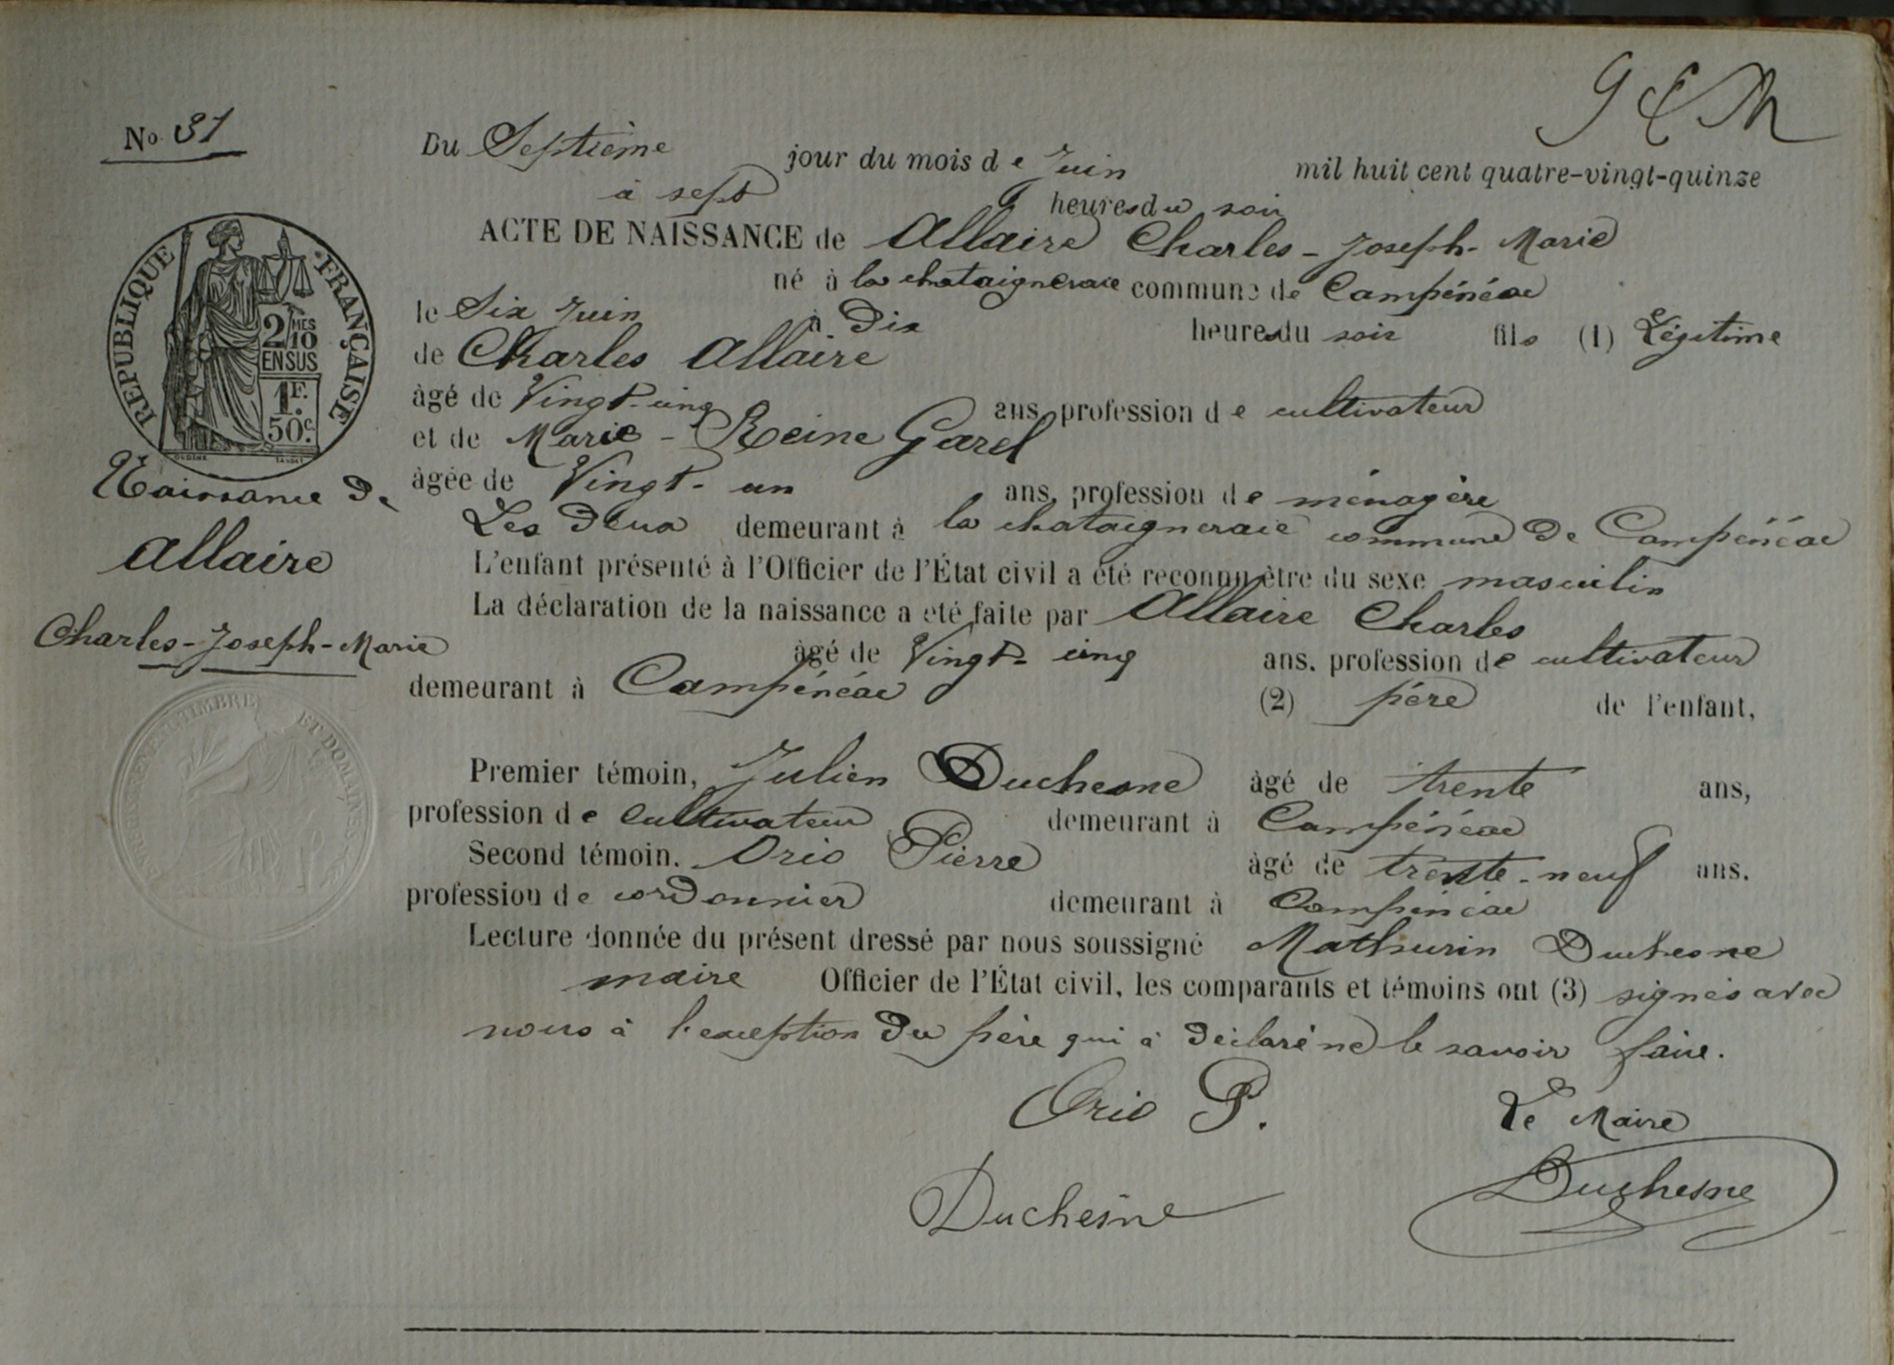 G & M
No 31
Du Septième jour du mois de Juin mil huit cent quatre-vingt-quinze
à sept heures du soir
ACTE DE NAISSANCE de Allaire Charles-Joseph-Marie
né à la chataigneraie commune de Campénéac
le Six Juin à Dix heures du soir fils (1) Légitime
de Charles Allaire
âgé de Vingt-cinq ans, profession de cultivateur
et de Marie-Reine Garel
âgée de Vingt-un ans, profession de ménagère
Les Deux demeurant à la chataigneraie commune de Campénéac
L'enfant présenté à l'Officier de l'État civil a été reconnu être du sexe masculin
La déclaration de la naissance a été faite par Allaire Charles
âgé de Vingt-cinq ans, profession de cultivateur
demeurant à Campénéac (2) père de l'enfant,
Premier témoin, Julien Duchesne âgé de trente ans,
profession de cultivateur demeurant à Campénéac
Second témoin, Orio Pierre âgé de trente-neuf ans.
profession de cordonnier demeurant à Campénéac
Lecture donnée du présent dressé par nous soussigné Mathurin Duchesne
maire Officier de l'État civil, les comparants et témoins ont (3) signés avec
nous à l'exception du père qui à déclaré ne le savoir faire.
Orio P. Le Maire
Duchesne Duchesne
RÉPUBLIQUE FRANÇAISE
2/10 MES
EN SUS
1F.
50c.
Naissance de
Allaire
Charles-Joseph-Marie
TIMBRE ET DOMAINES